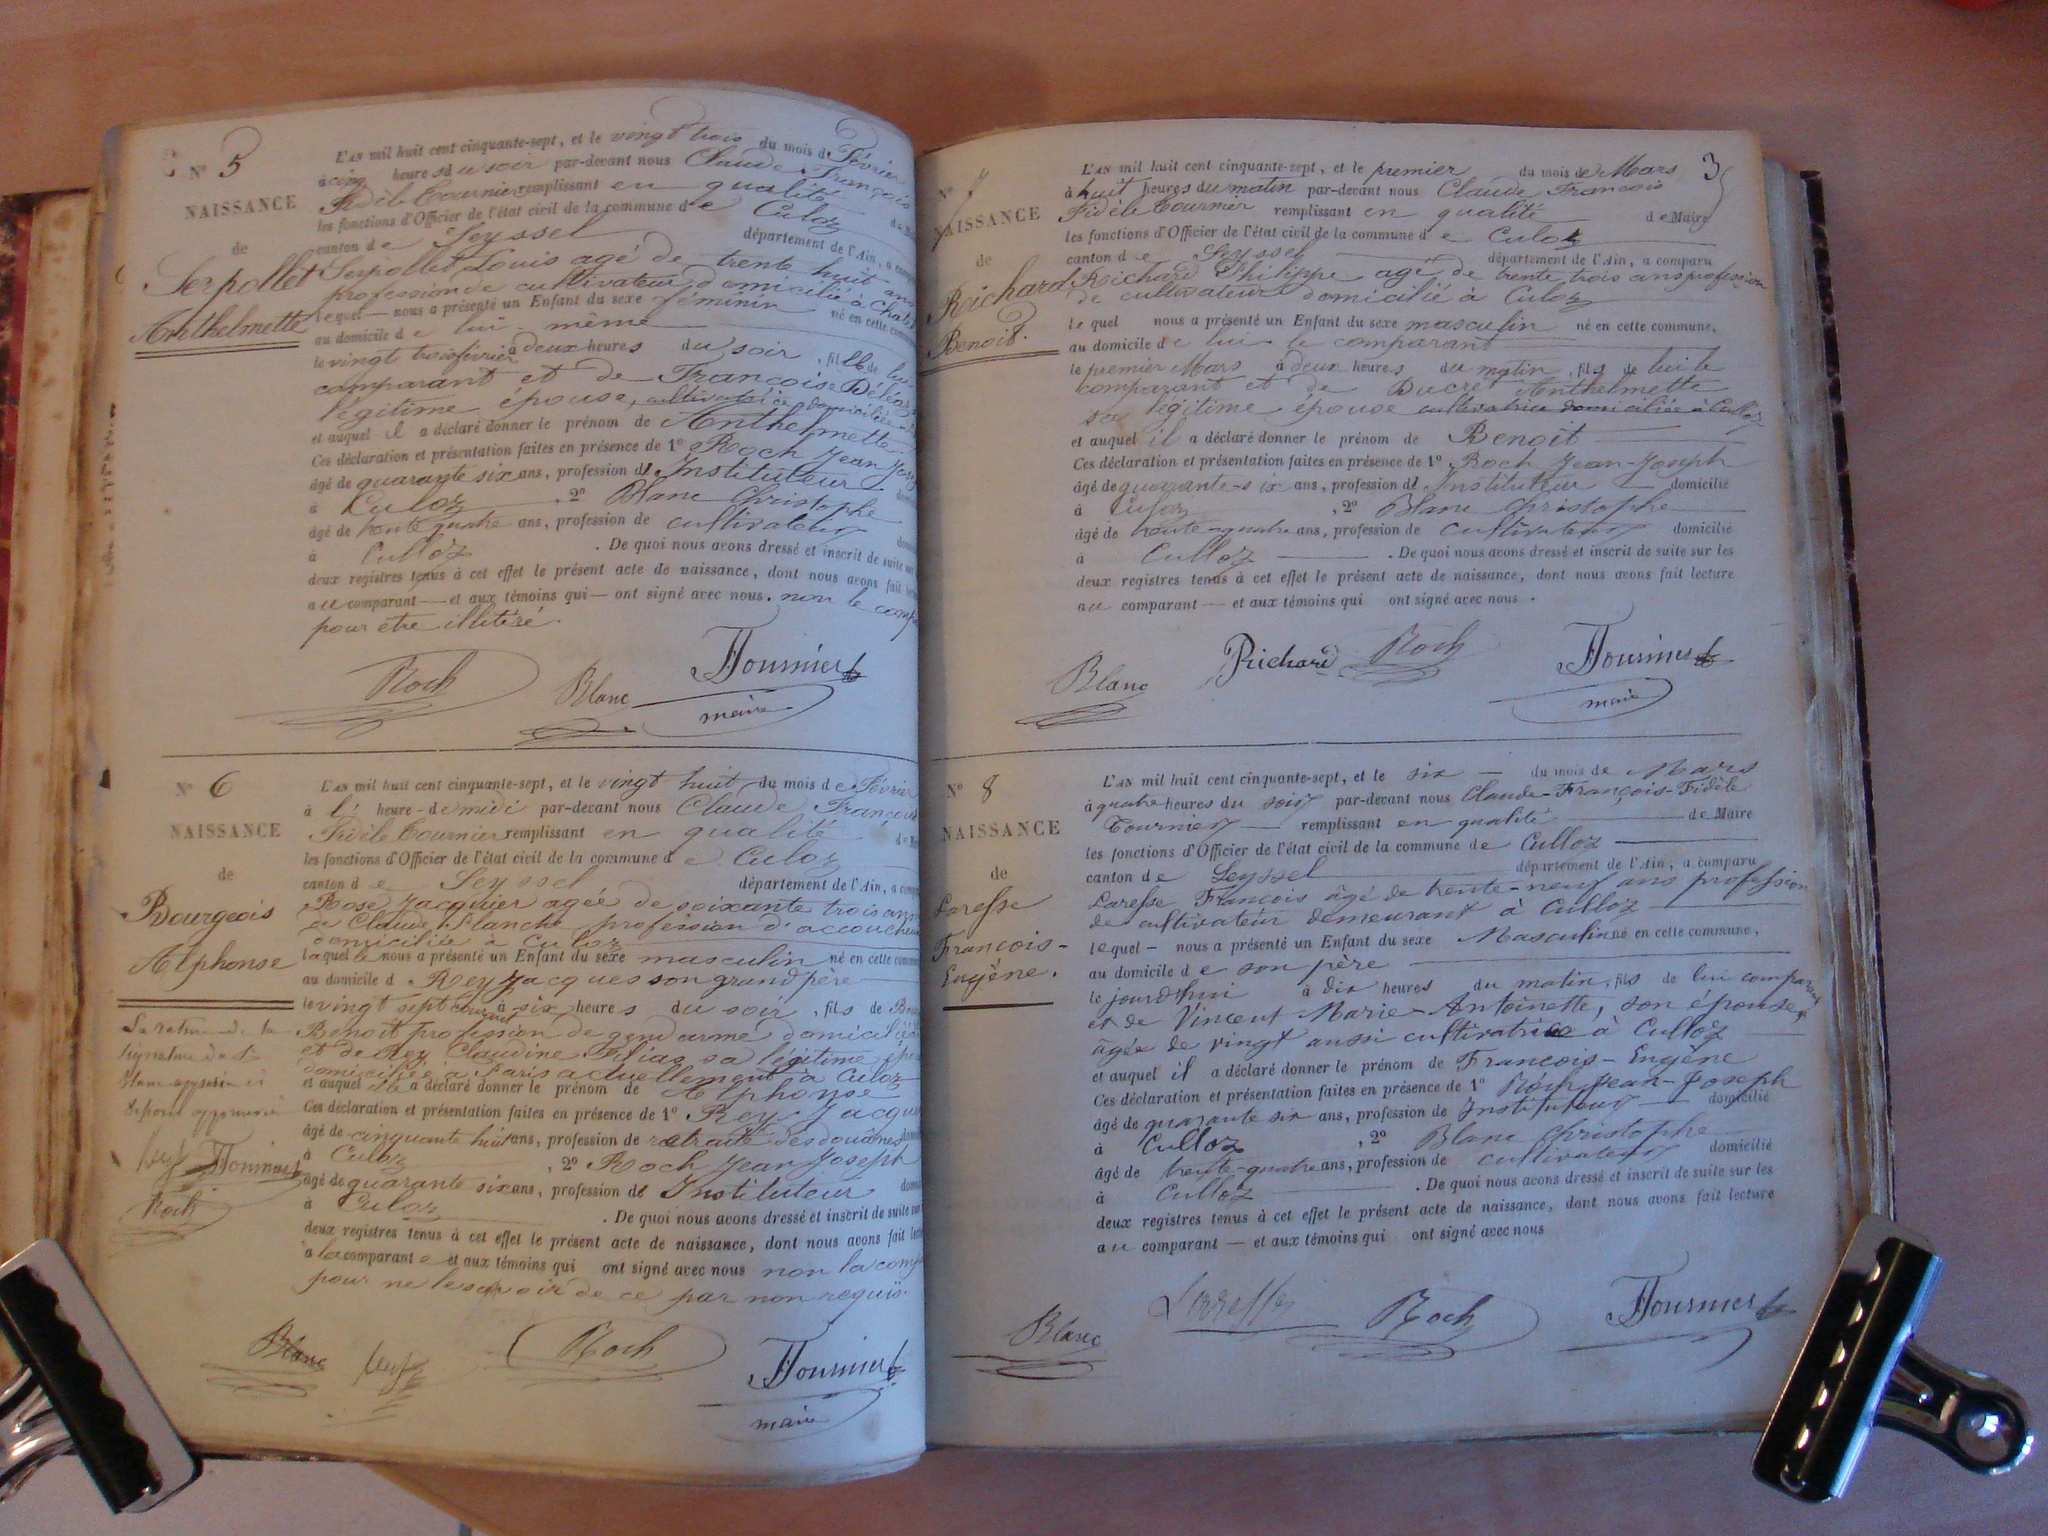 Nº 5
NAISSANCE
de
Serpollet
Anthelmette
L'AN mil huit cent cinquante-sept, et le vingt trois du mois de Février
à cinq heures du soir par-devant nous Claude François
Fidèle Tournier remplissant en qualité
les fonctions d'Officier de l'état civil de la commune de Culoz
canton de Seyssel département de l'Ain, a
Serpollet Louis agé de trente huit
profession de cultivateur domicilié à
lequel — nous a présenté un Enfant du sexe féminin né en cette
au domicile de lui même
le vingt trois février à deux heures du soir, fille de
comparant et de Françoise
légitime épouse, cultivatrice domiciliée
et auquel il a déclaré donner le prénom de Anthelmette
Ces déclaration et présentation faites en présence de 1º Roch Jean
âgé de quarante six ans, profession d'Instituteur
à Culoz, 2º Blanc Christophe
âgé de trente quatre ans, profession de cultivateur
à Culloz. De quoi nous avons dressé et inscrit de suite
deux registres tenus à cet effet le présent acte de naissance, dont nous avons fait
au comparant — et aux témoins qui — ont signé avec nous. non le
pour être illitéré.
Roch Blanc Tournier
maire
Nº 6
NAISSANCE
de
Bourgeois
Alphonse
La rature de la
signature de
Blanc apposée
Tournier
Roch
L'AN mil huit cent cinquante-sept, et le vingt huit du mois de Février
à 1 heure de midi par-devant nous Claude François
Fidèle Tournier remplissant en qualité
les fonctions d'Officier de l'état civil de la commune de Culoz
canton de Seyssel département de l'Ain, a
Rose Jacquier agée de soixante trois ans
de Claude Planche, profession d'accoucheuse
domiciliée à Culoz
laquelle nous a présenté un Enfant du sexe masculin né en cette
au domicile d Rey Jacques son grand père
le vingt sept courant à six heures du soir, fils de
Benoit profession de gendarme domicilié
et de Rey Claudine sa légitime
domiciliée à Paris actuellement à Culoz
et auquel elle a déclaré donner le prénom de Alphonse
Ces déclaration et présentation faites en présence de 1º Rey Jacques
âgé de cinquante huit ans, profession de retraité des douanes
à Culoz, 2º Roch Jean Joseph
âgé de quarante six ans, profession d'Instituteur
à Culoz. De quoi nous avons dressé et inscrit de suite
deux registres tenus à cet effet le présent acte de naissance, dont nous avons fait
à la comparante et aux témoins qui ont signé avec nous non la
pour ne le savoir de ce par non requis.
Blanc Roch Tournier
maire
3
Nº 7
NAISSANCE
de
Richard
Benoit.
L'AN mil huit cent cinquante-sept, et le premier du mois de Mars
à huit heures du matin par-devant nous Claude François
Fidèle Tournier remplissant en qualité de Maire
les fonctions d'Officier de l'état civil de la commune de Culoz
canton de Seyssel département de l'Ain, a comparu
Richard Philippe agé de trente trois ans profession
de cultivateur domicilié à Culoz
lequel nous a présenté un Enfant du sexe masculin né en cette commune,
au domicile de lui le comparant
le premier Mars à deux heures du matin, fils de lui le
comparant et de Ducret Anthelmette
sa légitime épouse cultivatrice domiciliée à Culloz
et auquel il a déclaré donner le prénom de Benoit
Ces déclaration et présentation faites en présence de 1º Roch Jean-Joseph
âgé de quarante-six ans, profession d'Instituteur domicilié
à Culoz, 2º Blanc Christophe
âgé de trente-quatre ans, profession de cultivateur domicilié
à Culloz. De quoi nous avons dressé et inscrit de suite sur les
deux registres tenus à cet effet le présent acte de naissance, dont nous avons fait lecture
au comparant — et aux témoins qui ont signé avec nous.
Blanc Richard Roch Tournier
maire
Nº 8
NAISSANCE
de
Laresse
François-
Eugène.
L'AN mil huit cent cinquante-sept, et le six — du mois de Mars
à quatre heures du soir par-devant nous Claude-François-Fidèle
Tournier — remplissant en qualité de Maire
les fonctions d'Officier de l'état civil de la commune de Culloz
canton de Seyssel département de l'Ain, a comparu
Laresse François âgé de trente-neuf ans profession
de cultivateur demeurant à Culloz
lequel — nous a présenté un Enfant du sexe Masculin né en cette commune,
au domicile de son père
le jourd'hui à dix heures du matin, fils de lui comparant
et de Vincent Marie-Antoinette, son épouse,
âgée de vingt aussi cultivatrice à Culloz
et auquel il a déclaré donner le prénom de François-Eugène
Ces déclaration et présentation faites en présence de 1º Roch Jean-Joseph
âgé de quarante six ans, profession d'Instituteur — domicilié
à Culloz, 2º Blanc Christophe
âgé de trente-quatre ans, profession de cultivateur domicilié
à Culloz. De quoi nous avons dressé et inscrit de suite sur les
deux registres tenus à cet effet le présent acte de naissance, dont nous avons fait lecture
au comparant — et aux témoins qui ont signé avec nous
Blanc Laresse Roch Tournier